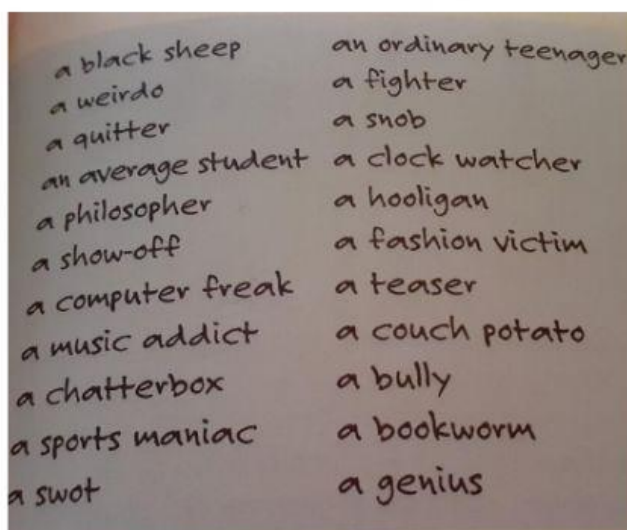 a black sheep
a weirdo
a quitter
an average student
a philosopher
a show-off
a computer freak
a music addict
a chatterbox
a sports maniac
a swot
an ordinary teenager
a fighter
a snob
a clock watcher
a hooligan
a fashion victim
a teaser
a couch potato
a bully
a bookworm
a genius